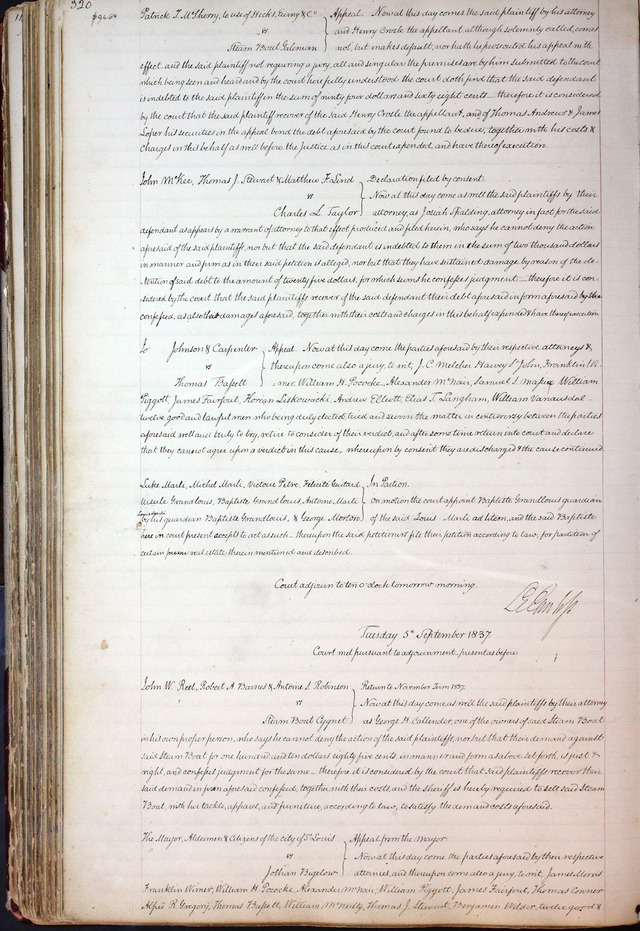 320
$94.68
Patrick T. McSherry, to use of Hicks, Ewing & Co } Appeal. Now at this day comes the said plaintiff by his attorney
vs and Henry Crosle the appellant, although solemnly called, comes
Steam Boat Galenian not, but makes default, nor hath he prosecuted his appeal with
effect, and the said plaintiff not requiring a jury, all and singular the premises are by him submitted to the court
which being seen and heard and by the court here fully understood the court doth find that the said defendant
is indebted to the said plaintiff in the sum of ninty four dollars and sixty eight cents — therefore it is considered
by the court that the said plaintiff recover of the said Henry Crosle the appellant, and of Thomas Andrews & James
Loper his securities in the appeal bond the debt aforesaid by the court found to be due, together with his costs &
charges in this behalf as well before the Justice, as in this court expended, and have thereof execution.
John McKee, Thomas J. Stewart & Matthew F. Lend } Declaration filed by consent.
vs Now at this day come as well the said plaintiffs by their
Charles L. Taylor attorney, as Josiah Spalding, attorney in fact for the said
defendant as appears by a warrant of attorney to that effect produced and filed herein, who says he cannot deny the action
aforesaid of the said plaintiff, nor but that the said defendant is indebted to them in the sum of two thousand dollars
in manner and form as in their said petition is alleged, nor but that they have sustained damage by reason of the de-
tention of said debt to the amount of twenty five dollars, for which sums he confesses judgment — therefore it is con-
sidered by the court that the said plaintiffs recover of the said defendant their debt aforesaid in form aforesaid by the
confessed, as also their damages aforesaid, together with their costs and charges in this behalf expended & have thereof execution
Johnson & Carpenter } Appeal. Now at this day come the parties aforesaid by their respective attorneys &
vs thereupon come also a jury, to wit, J. C. Melcher Harvey St John, Franklin Wi-
Thomas Bassett mer, William H. Pococke, Alexander McNair, Samuel S. William
Piggott, James Fairfout, Horgan Liskowacki, Andrew Elliott, Elias T. Langham, William Vanausdal —
twelve good and lawful men who being duly elected, tried and sworn the matter in controversy between the parties
aforesaid well and truly to try, retire to consider of their verdict, and after some time return into court and declare
that they cannot agree upon a verdict in this cause, whereupon by consent they are discharged & the cause continued.
Luke Marli, Michel Marli, Victoire Petre, Felicité Guitard } In Partion.
Ursule Grandlouis, Baptiste Grandlouis, Antoine Marli On motion the court appoint Baptiste Grandlouis guardian
by his guardian Baptiste Grandlouis, & George Morton of the said Louis Marli ad litem, and the said Baptiste
here in court present accepts to act as such — thereupon the said petitioners file their petition according to law, for partition of
certain real estate therein mentioned and described.
Court adjourn to ten o'clock tomorrow morning.
Tuesday 5th September 1837
Court met pursuant to adjournment present as before
John W. Reel, Robert A Barnes & Antoine S. Robinson } Return to November Term 1837.
vs Now at this day come as well the said plaintiffs by their attorney
Steam Boat Cygnet as George H. Callender, one of the owners of said Steam Boat
in his own proper person, who says he cannot deny the action of the said plaintiffs, nor but that their demand against
said Steam Boat for one hundred and ten dollars eighty five cents, in manner and form as above set forth, is just &
right, and confesses judgment for the same — therefore it is considered by the court that said plaintiffs recover their
said demand in form aforesaid confessed, together with their costs, and the Sheriff is hereby required to sell said Steam
Boat, with her tackle, apparel, and furniture, according to law, to satisfy the demand costs aforesaid.
The Mayor, Aldermen & Citizens of the city of St Louis } Appeal from the mayor
vs Now at this day come the parties aforesaid by their respective
Jothan Bigelow attornies, and thereupon come also a jury, to wit, James Morris
Franklin Wimer, William H. Pococke, Alexander McNair, William Piggott, James Fairfout, Thomas Conner
Alfred R. Gregory, Thomas Bassett, William McNeilly, Thomas J. Stewart, Benjamin Wilder, twelve good &